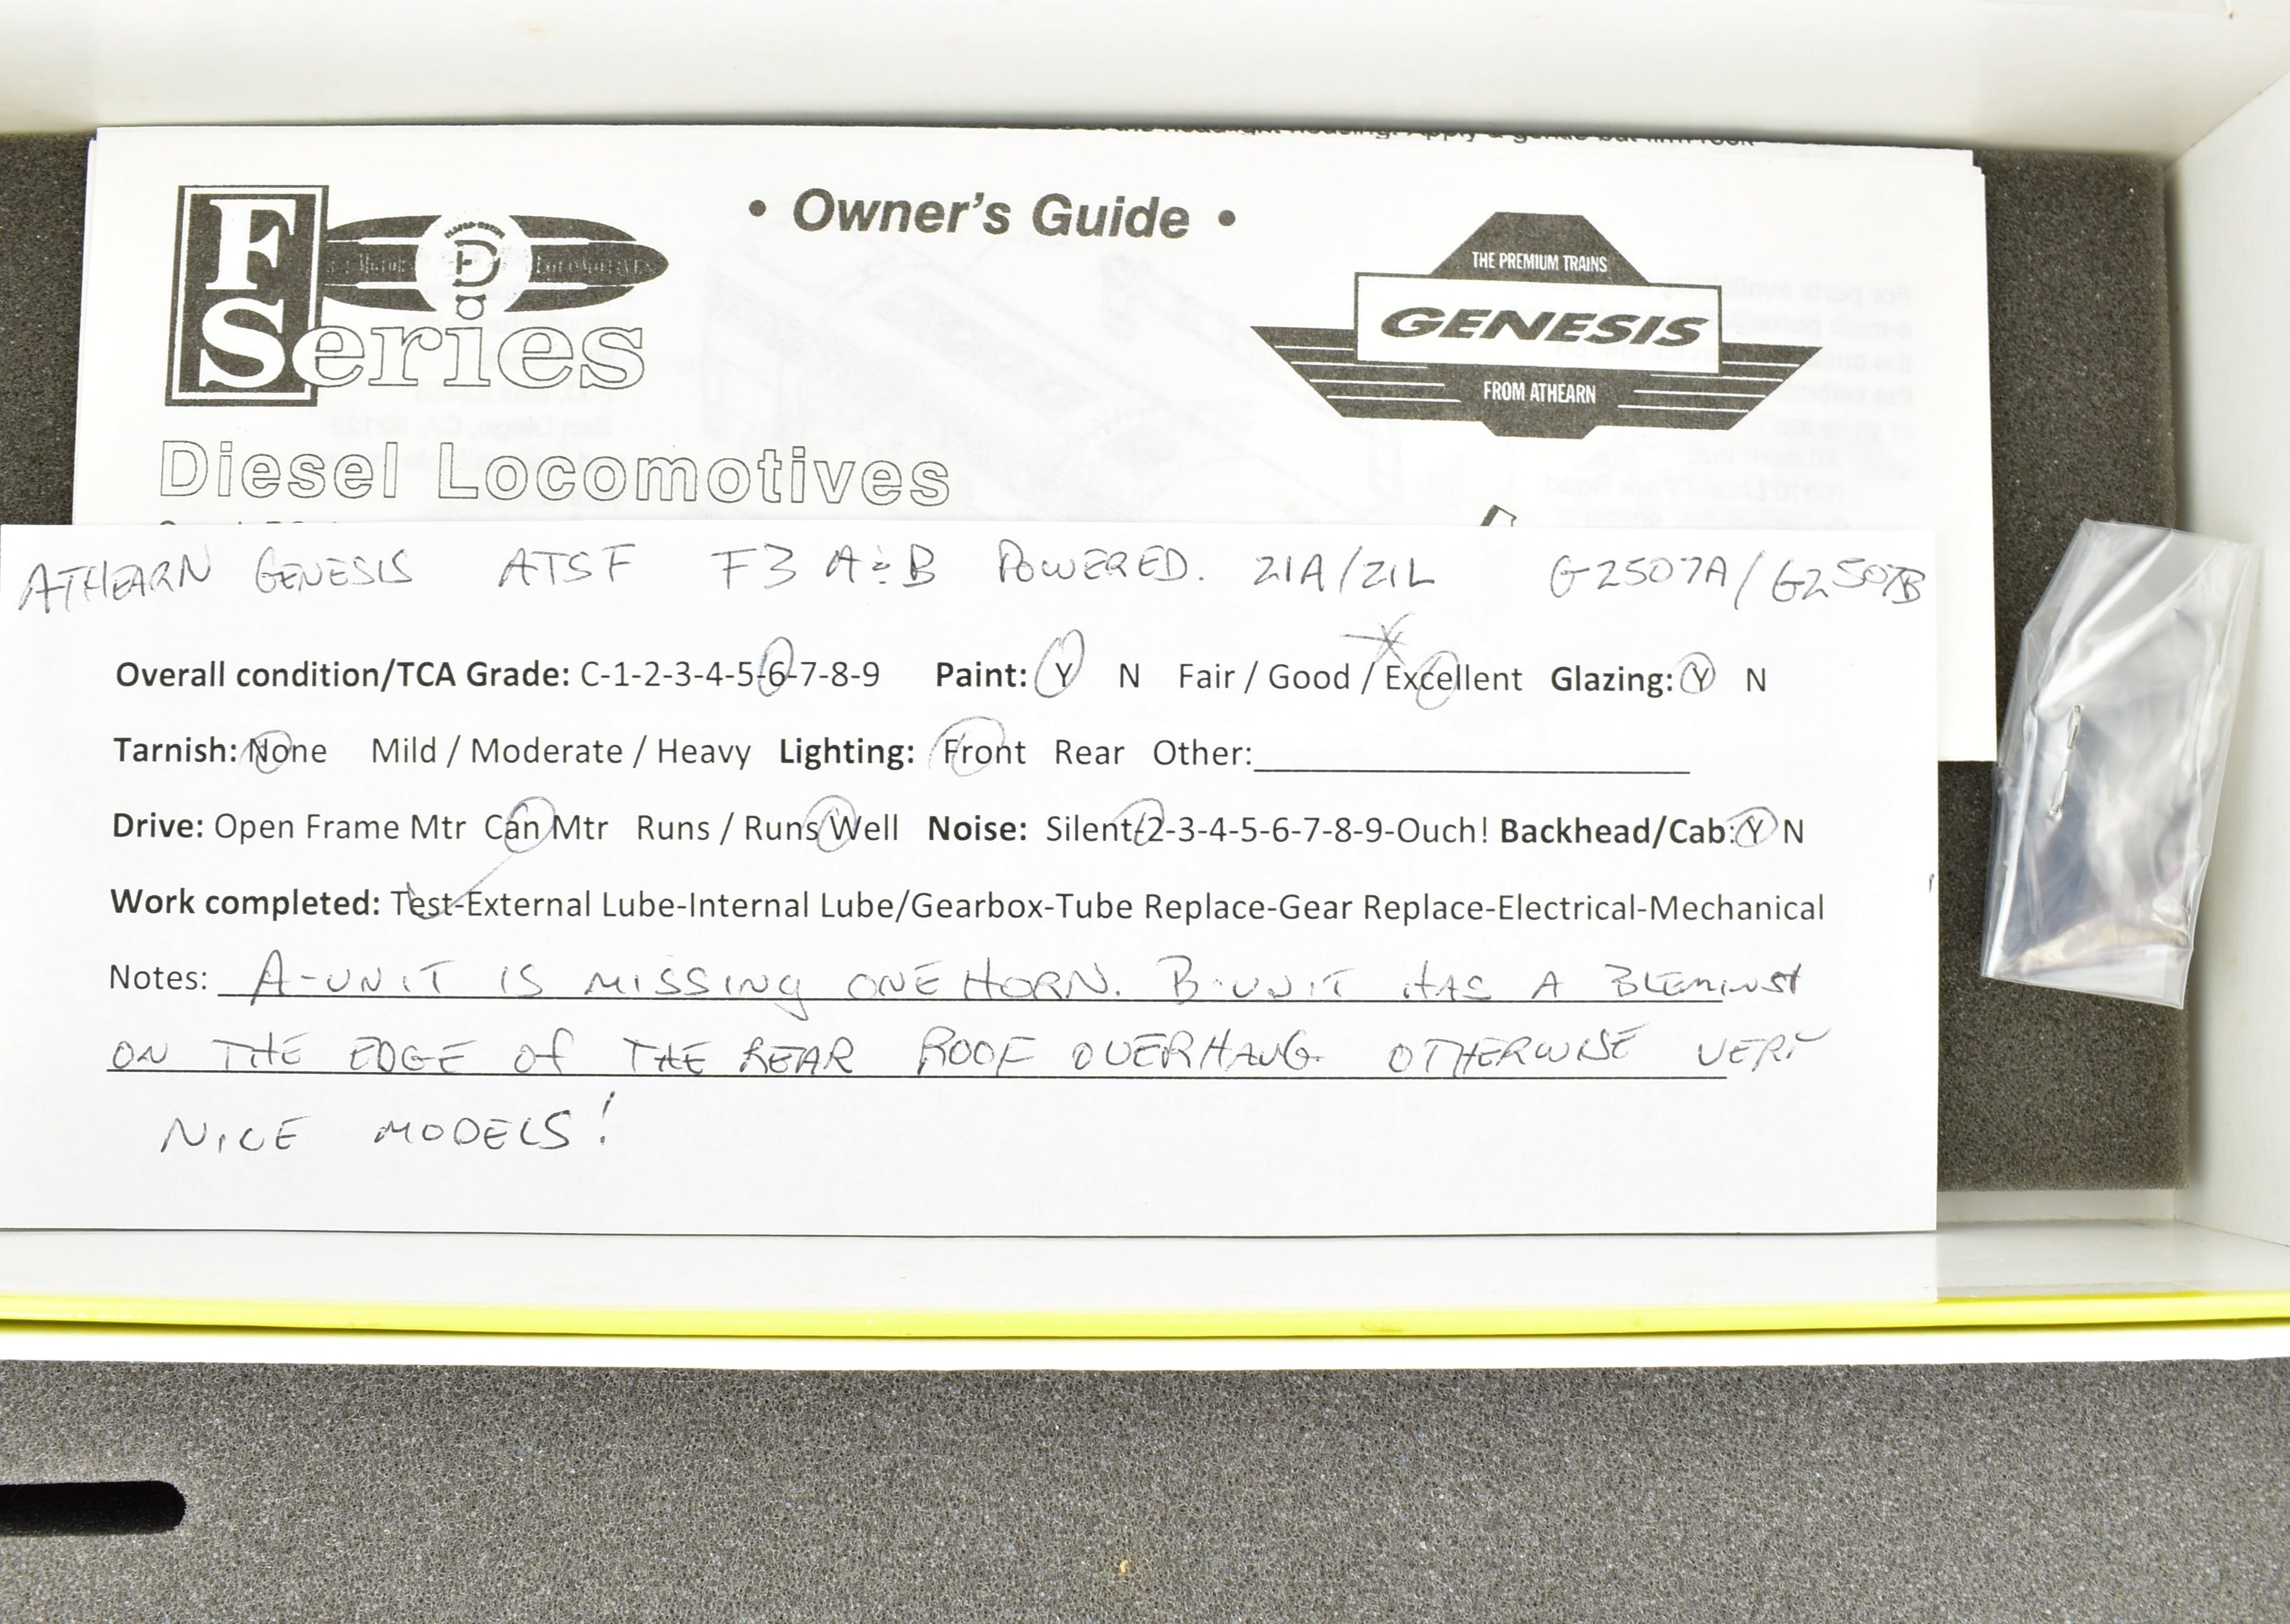 • Owner's Guide •
F Series
THE PREMIUM TRAINS
GENESIS
FROM ATHEARN
Diesel Locomotives
ATHEARN GENESIS ATSF F3 A&B POWERED. 21A/21L G2507A/G2507B
Overall condition/TCA Grade: C-1-2-3-4-5-6-7-8-9 Paint: Y N Fair / Good / Excellent Glazing: Y N
Tarnish: None Mild / Moderate / Heavy Lighting: Front Rear Other:
Drive: Open Frame Mtr Can Mtr Runs / Runs Well Noise: Silent-2-3-4-5-6-7-8-9-Ouch! Backhead/Cab: Y N
Work completed: Test-External Lube-Internal Lube/Gearbox-Tube Replace-Gear Replace-Electrical-Mechanical
Notes: A-UNIT IS MISSING ONE HORN. B-UNIT HAS A BLEMINSH
ON THE EDGE OF THE REAR ROOF OVERHANG. OTHERWISE VERY
NICE MODELS!